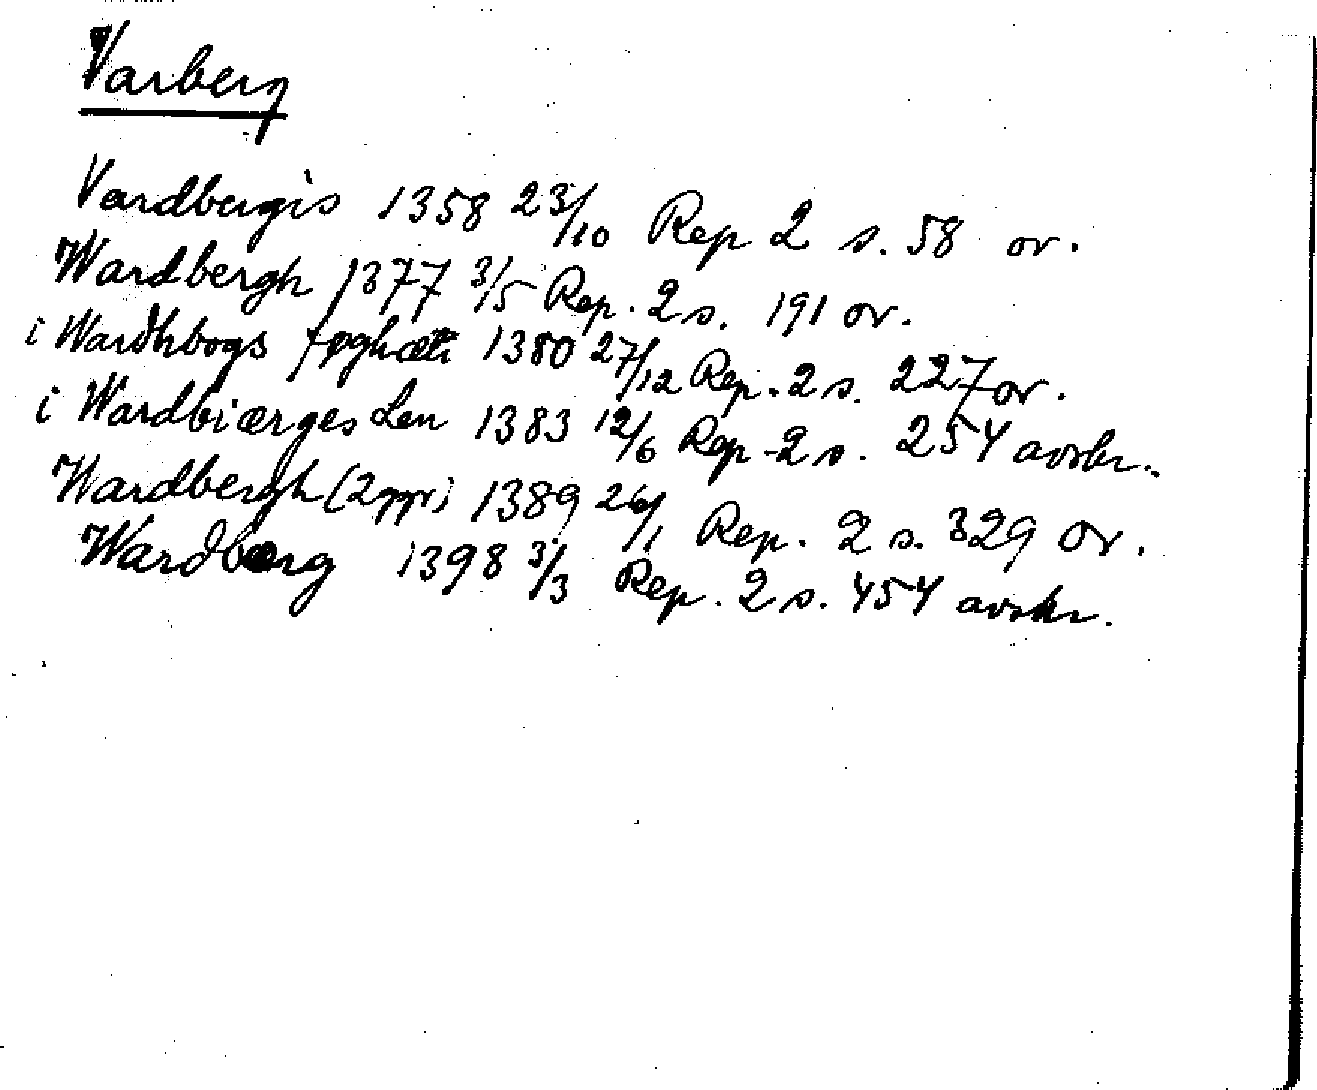 Varberg
Vardbergis 1358 23/10 Rep 2 s. 58 or.
Wardbergh 1377 3/5 Rep. 2 s. 191 or.
i Wardhbogs 1380 27/12 Rep. 2 s. 227 or.
i Wardbiærges Len 1383 12/6 Rep. 2 s. 254 avskr.
Wardbergh (2 ggr) 1389 26/1 Rep. 2 s. 329 or.
Wardberg 1398 3/3 Rep. 2 s. 454 avskr.